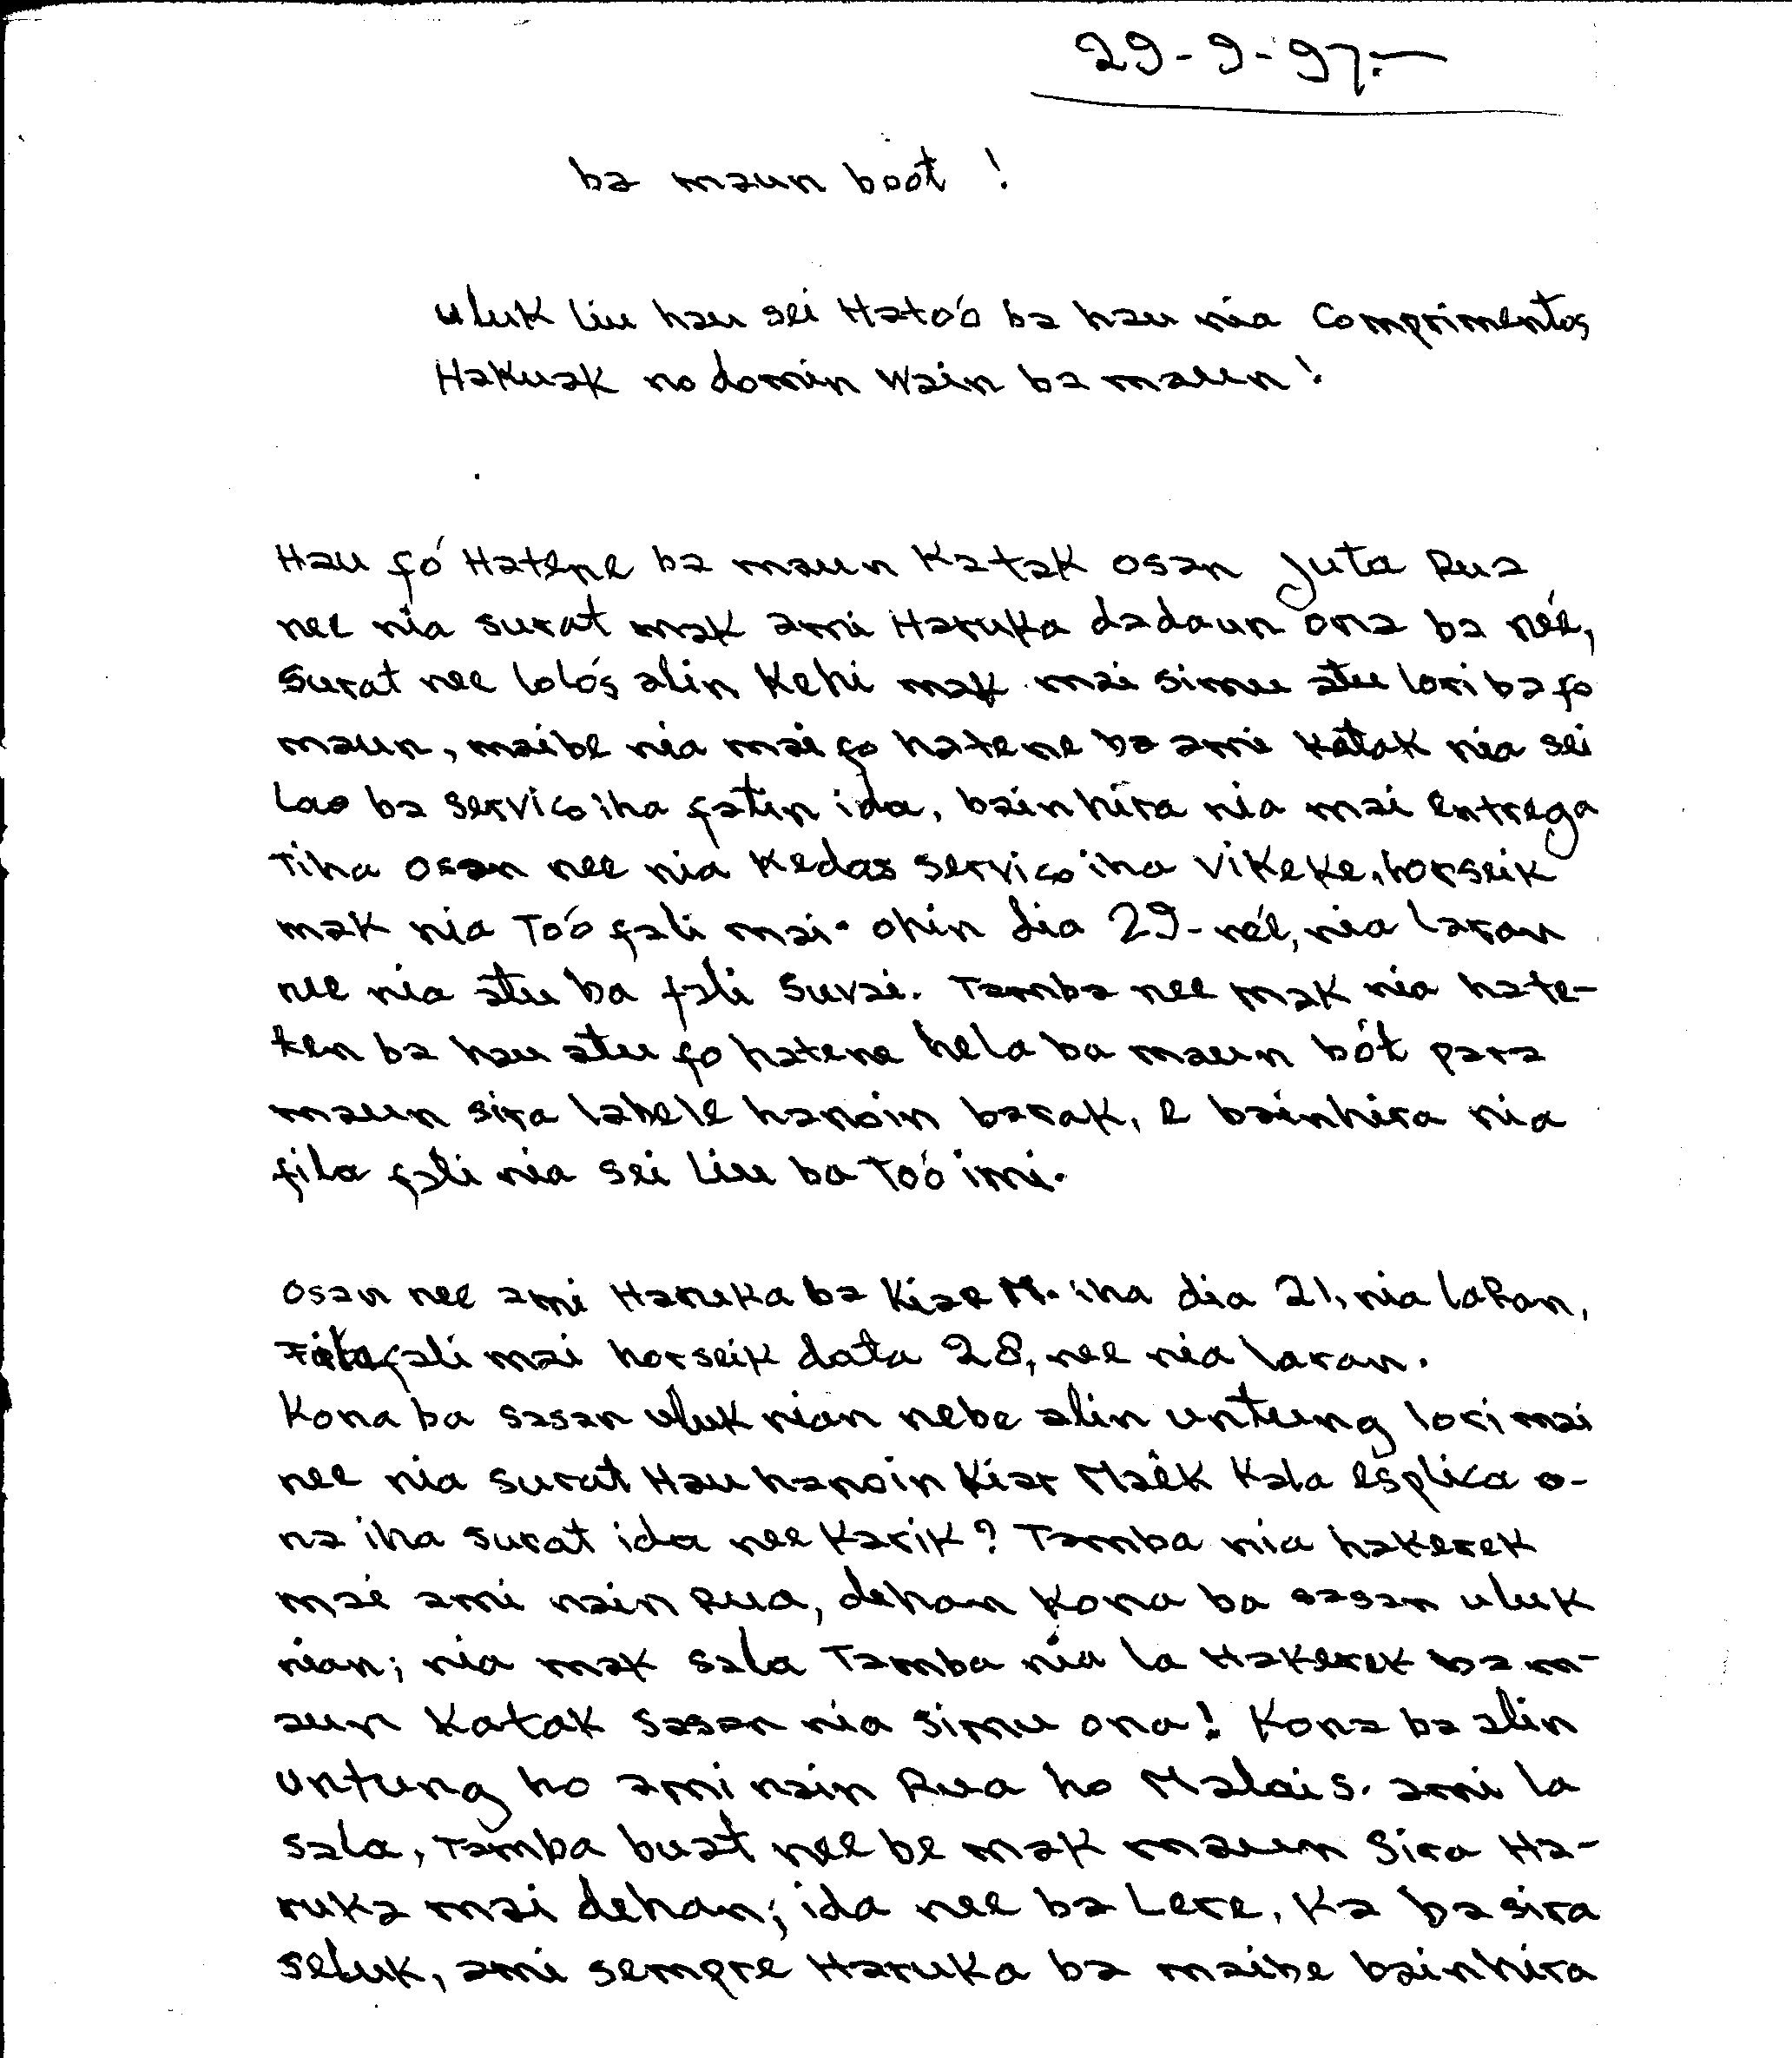 29-9-97.-
ba maun boot !
uluk liu hau sei Hatoó ba hau nia Comprimentos
Hakuak no domin Wain ba maun !
Hau fó Hatene ba maun Katak osan Juta Rua
nee nia surat mak ami Haruka dadaun ona ba neé,
Surat nee lolós alin Kehi mak mai simu atu lori ba fo
maun, maibe nia mai fo hatene ba ami katak nia sei
Lao ba serviço iha fatin ida, bainhira nia mai entrega
Tiha osan nee nia Kedas serviço iha Vikeke, horseik
mak nia Toó fali mai. ohin dia 29-neé, nia laran
nee nia atu ba fali Suvai. Tamba nee mak nia hate-
ten ba hau atu fo hatene hela ba maun bót para
maun sira labele hanoin barak, e bainhira nia
fila fali nia sei Liu ba Toó imi.
Osan nee ami Haruka ba Kiar M. iha dia 21, nia laRan,
Fila fali mai horseik data 28, nee nia laran.
Kona ba sasan uluk nian nebe alin untung lori mai
nee nia surat Hau hanoin Kiar Maék Kala esplica o-
na iha surat ida nee Karik? Tamba nia hakerek
mai ami nain Rua, dehan Kona ba sasan uluk
nian; nia mak sala Tamba nia la Hakerek ba m-
aun Katak sasan nia simu ona! Kona ba alin
Untung ho ami nain Rua ho Malai S. ami la
sala, Tamba buat nee be mak maun Sira Ha-
ruka mai dehan; ida nee ba Lere, Ka ba sira
seluk, ami sempre Haruka ba maibe bainhira